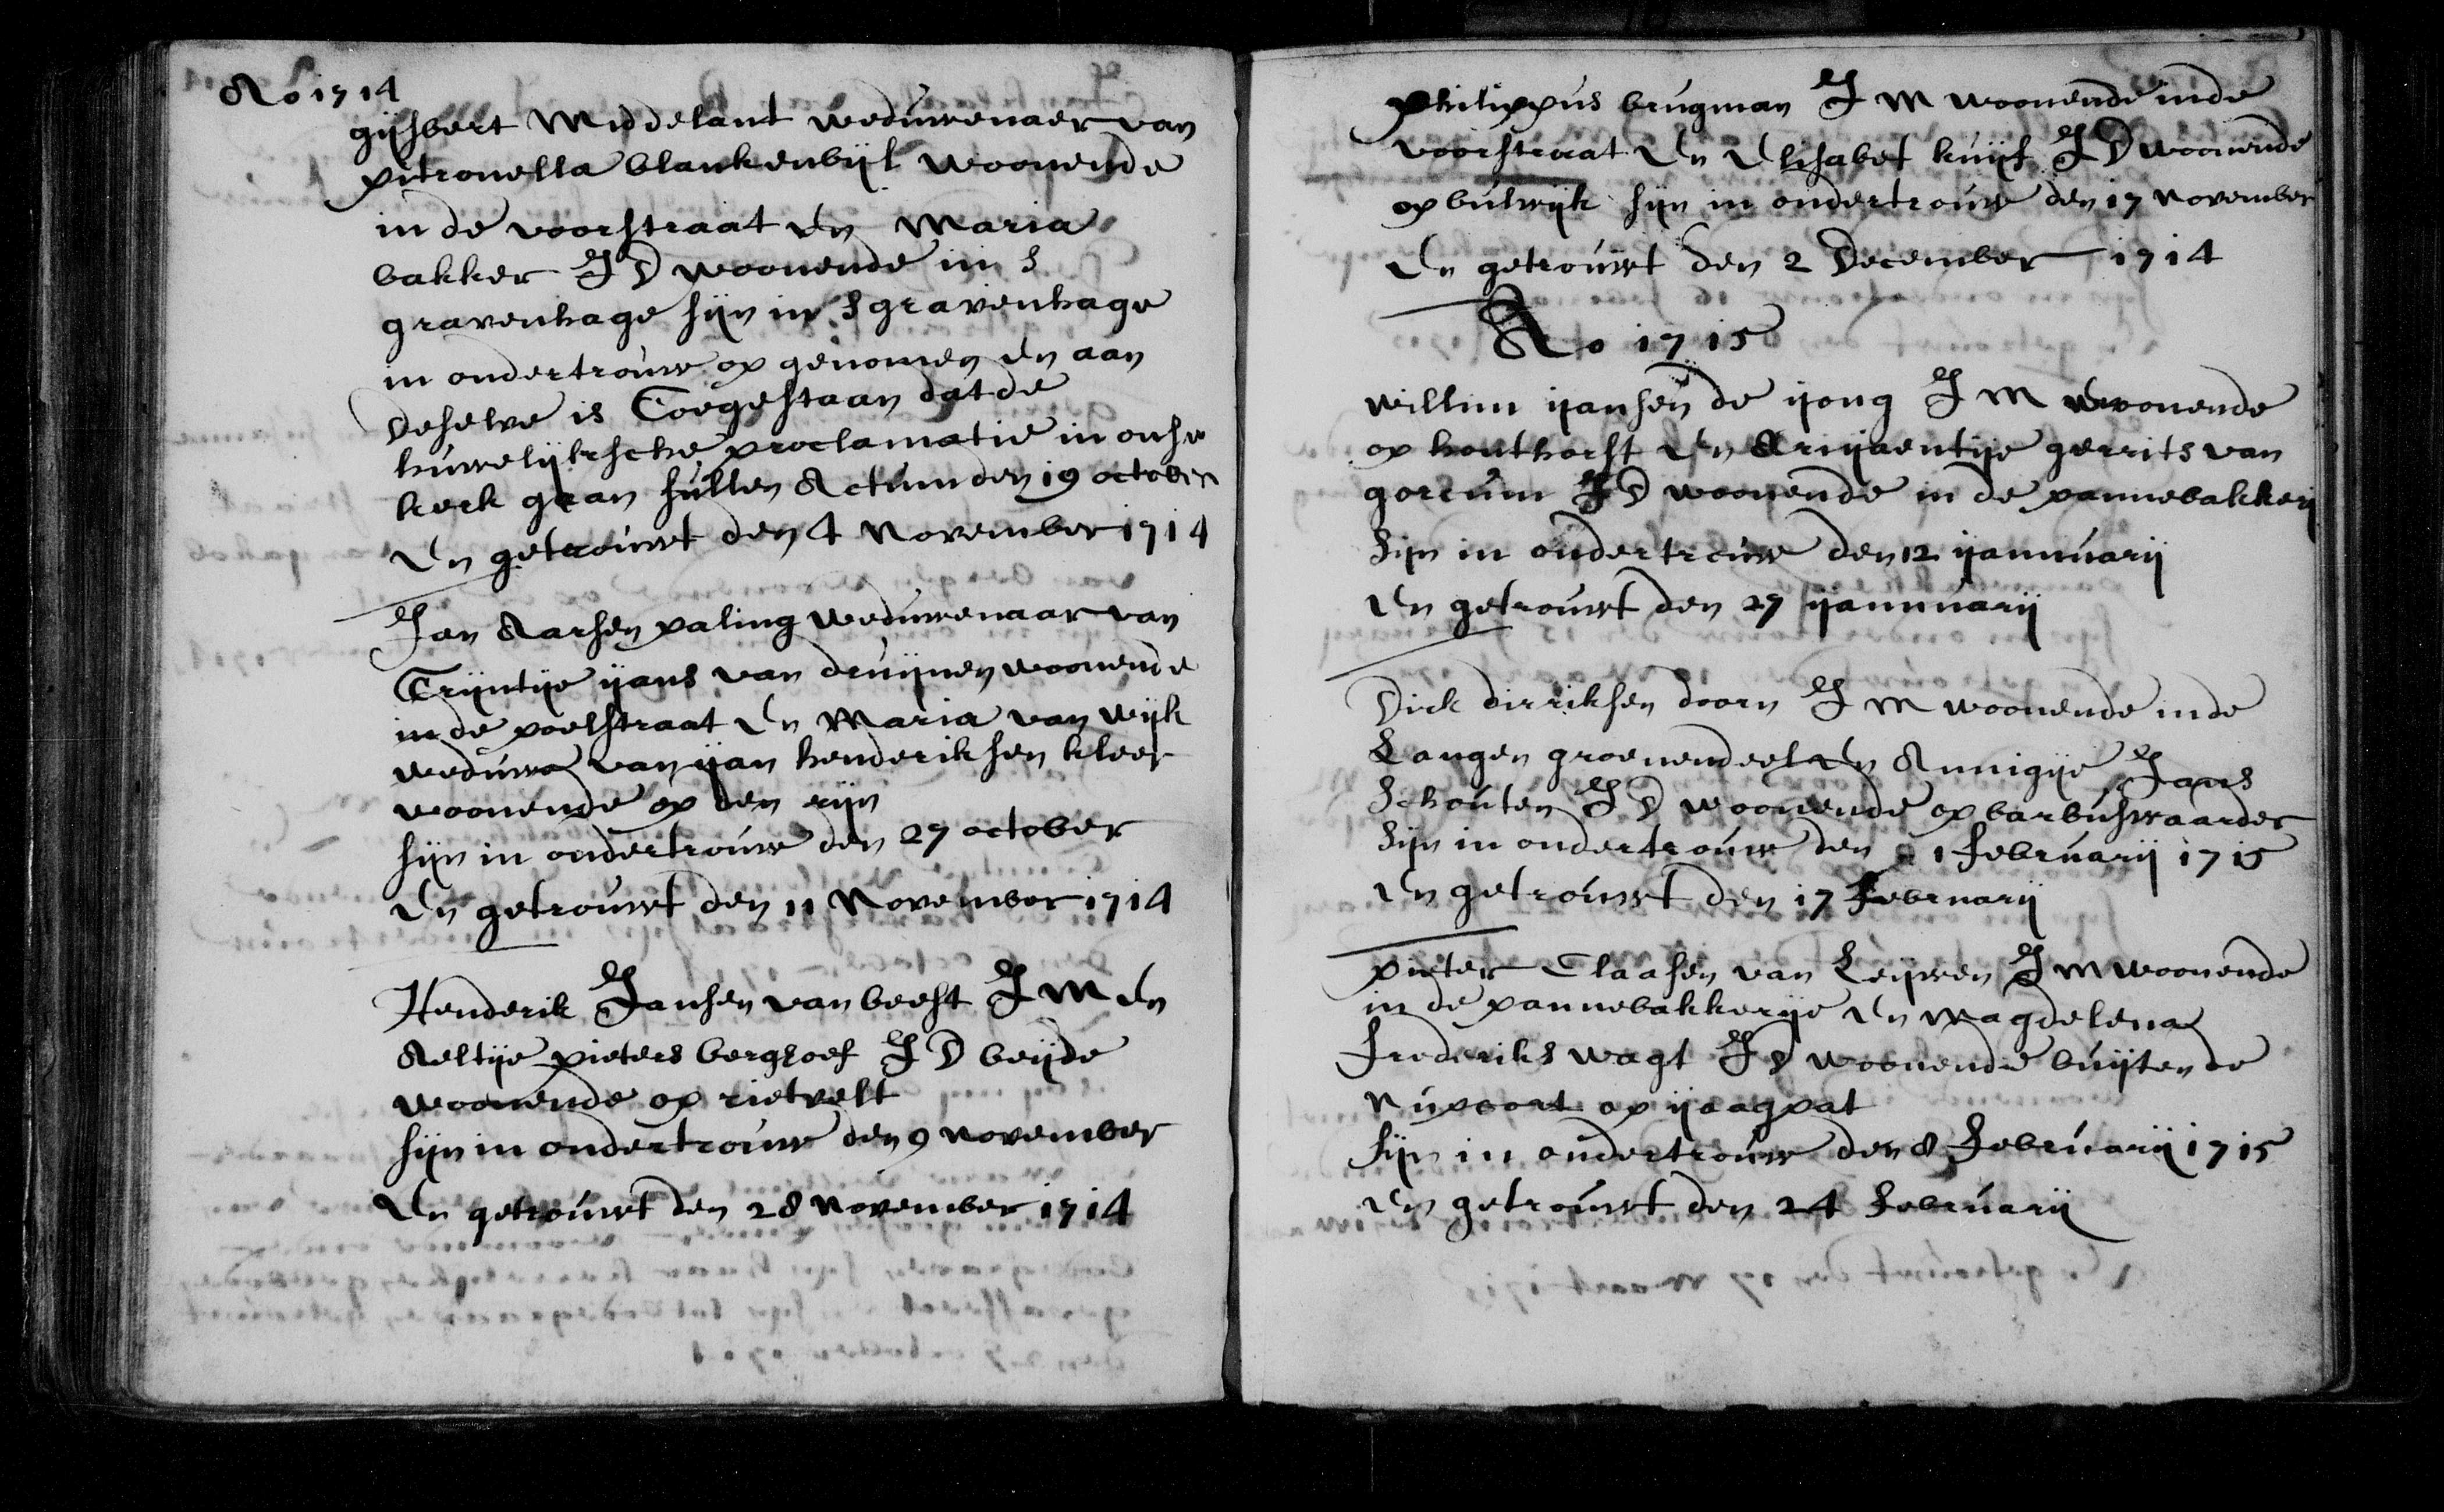 Ao 1714
gijsbert Middelant weduwenaer van
pitronella blankenbijl woonende
in de voorstraat En Maria
bakker J D woonende in S
gravenhage sijn in Sgravenhage
in ondertrouw op genomen En aan
deselve is Toegestaan dat de
huwelijksche proclamatie in onse
kerk gaan sullen Actum den 19 october
En getrouwt den 4 November 1714
Jan Aarsen paling weduwenaar van
Trijntije ijans van druijnen woonende
in de poelstraat En Maria van wijk
weduwe van ijan henderiksen kleer
woonende op den rijn
sijn in ondertrouw den 27 october
En getrouwt den 11 November 1714
Henderik Jansen van beest J M En
Aeltije pieters berghoef J D beijde
woonende op rietvelt
sijn in ondertrouw den 9 november
En getrouwt den 28 November 1714
philippus brugman J M woonende inde
voorstraat En Elisabet kuijf J D woonende
op bulwijk sijn in ondertrouw den 17 November
En getrouwt den 2 December 1714
Ao 1715
willim ijansen de ijong J M woonende
op houthorst En Arijaentije gerrits van
gorcum J D woonende in de pannebakkerij
sijn in ondertrouw den 12 ijannuarij
En getrouwt den 27 ijannuarij
Dirk dirriksen doorn J M woonende inde
Langen groenendeel En Annigije Jans
Schouten J D woonende op barbuswaarder
sijn in ondertrouw den 1 februarij 1715
En getrouwt den 17 Februarij
pieter Claasen van Leijwen J M woonende
in de pannebakkerije En Magdelena
frederiks wagt J D woonende buijten de
Nupoort op ijaagpat
sijn in ondertrouw den 8 februarij 1715
En getrouwt den 24 februarij